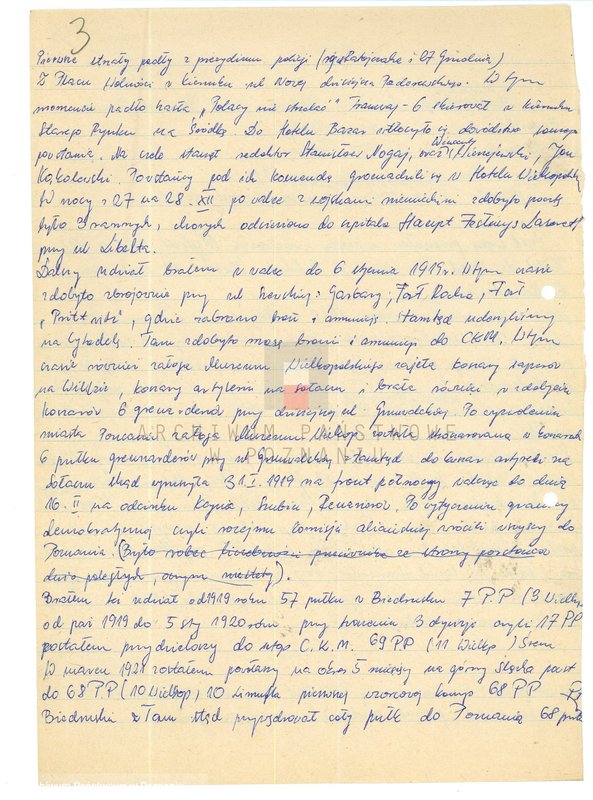 3
Pierwsze strzały padły z prezydium policji (róg Ratajczaka i 27 Grudnia)
Z Placu Wolności w kierunku ul Nowej dzisiejsza Paderewskiego. W tym
momencie padło hasło „Polacy nie strzelać" Tramwaj - 6 skierował w kierunku
Starego Rynku na Śródkę. Do Hotelu Bazar wtłoczyło się dowództwo
powstania. Na czele stanął redaktor Stanisław Nogaj, oraz Wincenty Wierzejewski, Jan
Kąkolewski. Powstańcy pod ich komendą gromadzili się w Hotelu Wielkopolski
W nocy z 27 na 28. XII po walce z wojskami niemieckimi zdobyto pocztę
było 3 rannych, chorych odniesiono do szpitala Haupt Festungs Lazarett
przy ul Libelta.
Dalszy udział brałem w walce do 6 stycznia 1919r. W tym czasie
zdobyto zbrojownie przy ul Szewskiej i Garbary, Fort Rocha, Fort
„Prittwitz", gdzie zabrano broń i amunicję. Stamtąd uderzyliśmy
na Cytadelę. Tam zdobyto masę broni i amunicji do CKM. W tym
czasie również załoga Muzeum Wielkopolskiego zajęła koszary saperów
na Wildzie, koszary artylerii na Sołaczu i brała również w zdobyciu
koszarów 6 grenadierów przy dzisiejszej ul. Grunwaldzkiej. Po wyzwoleniu
miasta Poznania załoga Muzeum Wielkop została skoszarowana w koszarach
6 pułku grenadierów przy ul Grunwaldzkiej stamtąd do koszar artylerii na
Sołaczu skąd wyruszyła 31 I. 1919 na front północny walcząc do dnia
16. II na odcinku Kcynia, Szubin, Rynarzewo. Po wytyczeniu granicy
demokratycznej czyli rozejmu komisja aliancka wrócili wszyscy do
Poznania. (Było wobec przeciwnika ze strony powstańców
dużo poległych, niestety).
Brałem też udział od 1919 roku 57 pułku w Biedrusku 7 P.P (3 Wielkp
od paź 1919 do 5 sty 1920 roku przy tworzeniu 3 dywizji czyli 17 PP
zostałem przydzielony do komp C.K.M. 69 PP (11 Wielkp) Śrem
W marcu 1921 zostałem posłany na okres 5 miesięcy na górny Śląsk
do 68 PP (10 Wielkop, 10 kompania 68 PP
Biedruska z Tam skąd cały pułk do Poznania 68 pułk
ARCHIWUM PAŃSTWOWE
W POZNANIU